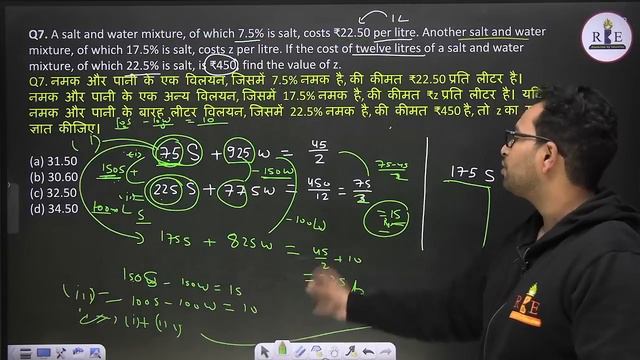 Q7. A salt and water mixture, of which 7.5% is salt, costs ₹22.50 per litre. Another salt and water
mixture, of which 17.5% is salt, costs z per litre. If the cost of twelve litres of a salt and water
mixture, of which 22.5% is salt, is ₹450, find the value of z.
Q7. नमक और पानी के एक विलयन, जिसमें 7.5% नमक है, की कीमत ₹22.50 प्रति लीटर है।
नमक और पानी के एक अन्य विलयन, जिसमें 17.5% नमक है, की कीमत ₹z प्रति लीटर है। यदि
नमक और पानी के बारह लीटर विलयन, जिसमें 22.5% नमक है, की कीमत ₹450 है, तो z का
ज्ञात कीजिए।
1L
(a) 31.50
(b) 30.60
(c) 32.50
(d) 34.50
75 S + 925 W = 45/2
150S
-150W
225 S + 775W = 450/12 = 75/2
75-45/2
= 15
100W
175S + 825W = 45/2 + 10
150S - 150W = 15
100S - 100W = 10
(i) + (iii)
175 S
R E
R E